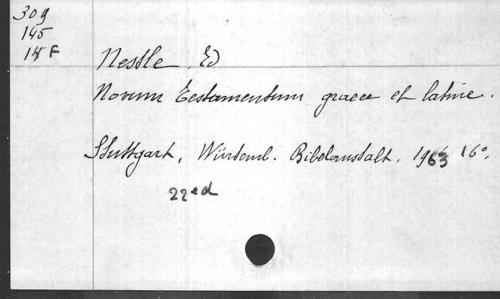 309
145
14 F
Nestle, Ed
Novum Testamentum graece et latine.
Stuttgart, Würtemb. Bibelanstalt, 1963 16°.
22 ed